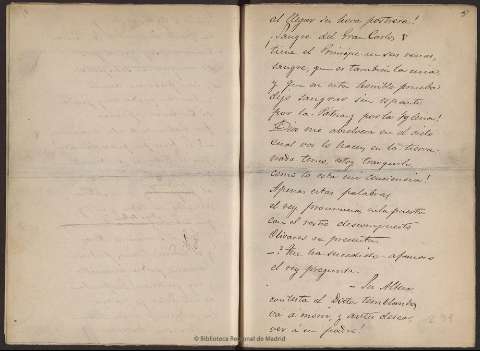 el llegar su hora postrera!
¡Sangre del Gran Carlos V
tiene el Príncipe en sus venas,
sangre, que es también la mia
y que en esta horrible prueba
dejo sangrar sin espanto
por la Patria y por la Iglesia!
Dios me absolverá en el cielo
cual vos lo haceis en la tierra
nada temo, estoy tranquilo
como lo esta mi conciencia!
Apenas estas palabras
el rey pronuncia, en la puerta
con el rostro descompuesto
Olivares se presenta
–¿Que ha sucedido – afanoso
el rey pregunta.
– Su Alteza
contesta el Doctor temblando
va a morir, y antes desea
ver á su padre!
© Biblioteca Regional de Madrid